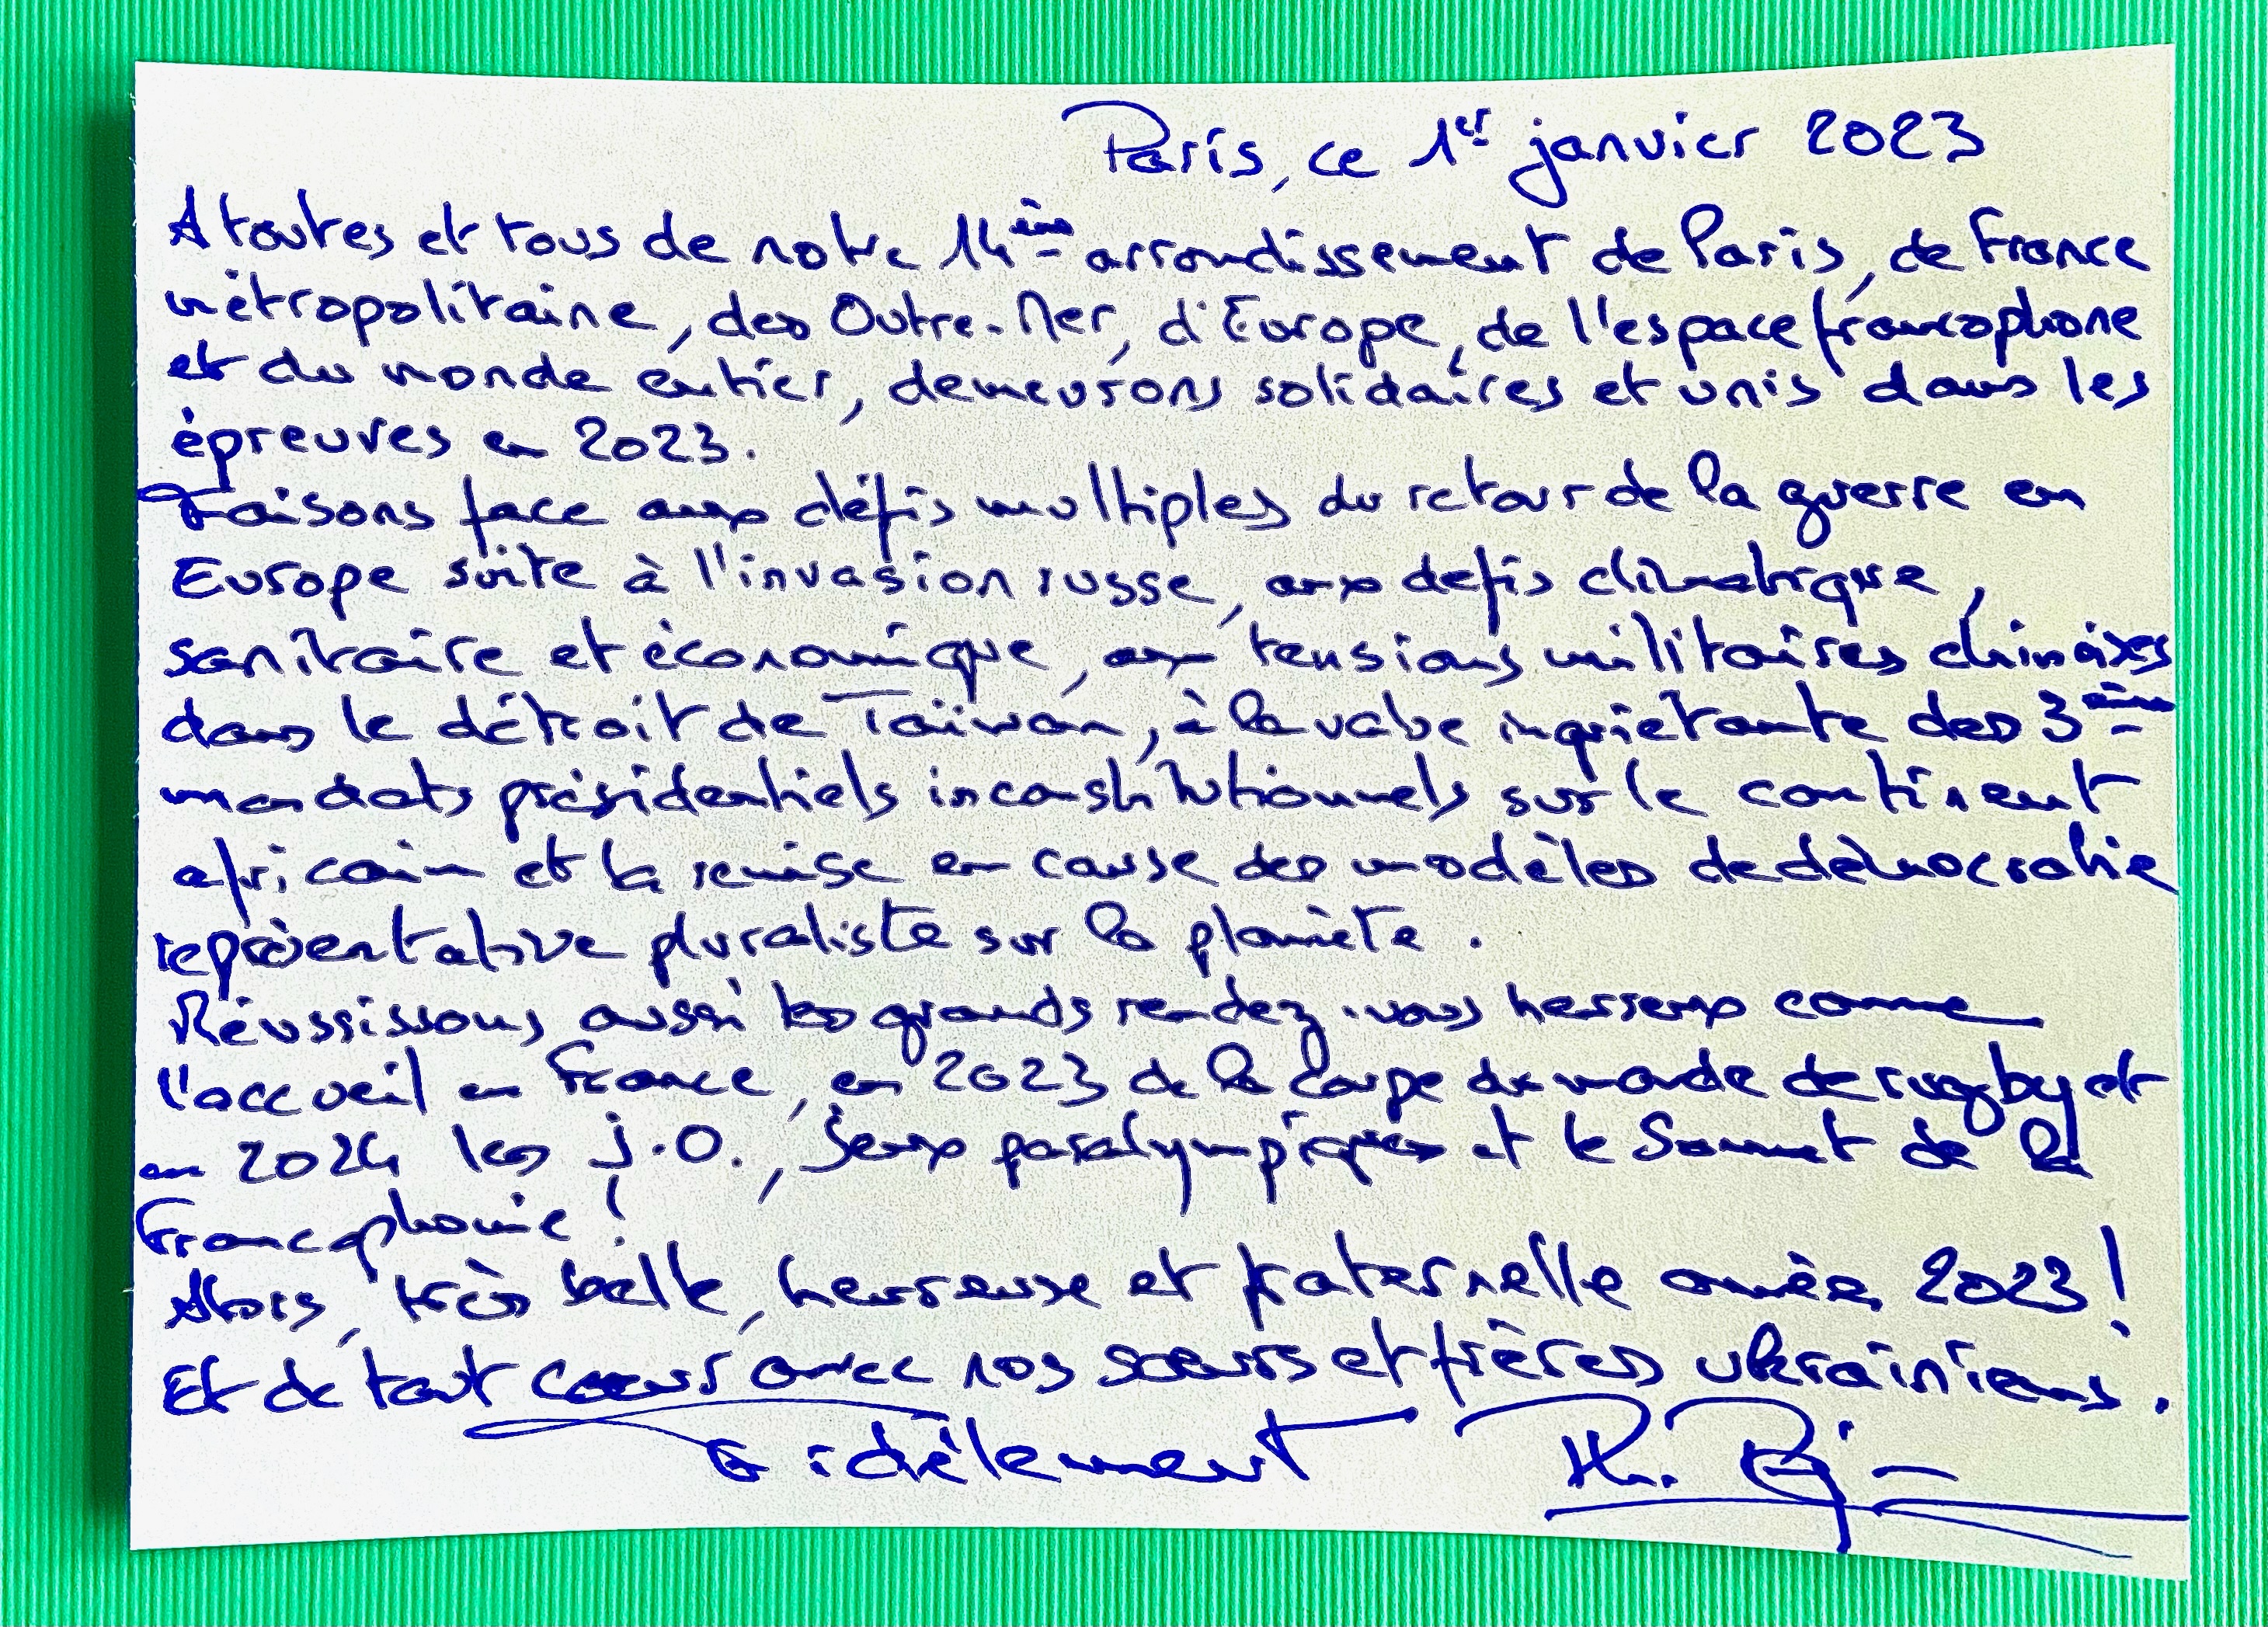 Paris, ce 1er janvier 2023
A toutes et tous de notre 14ème arrondissement de Paris, de France
métropolitaine, des Outre-Mer, d'Europe, de l'espace francophone
et du monde entier, demeurons solidaires et unis dans les
épreuves en 2023.
Faisons face aux défis multiples du retour de la guerre en
Europe suite à l'invasion russe, aux défis climatique,
sanitaire et économique, aux tensions militaires chinoises
dans le détroit de Taïwan, à la valse inquiétante des 3ème
mandats présidentiels inconstitutionnels sur le continent
africain et la remise en cause des modèles de démocratie
représentative pluraliste sur la planète.
Réussissons aussi les grands rendez-vous heureux comme
l'accueil en France, en 2023 de la Coupe du monde de rugby et
en 2024 les J.O., Jeux paralympiques et le Sommet de la
Francophonie !
Alors, très belle, heureuse et fraternelle année 2023 !
Et de tout cœur avec nos sœurs et frères ukrainiens.
Fidèlement